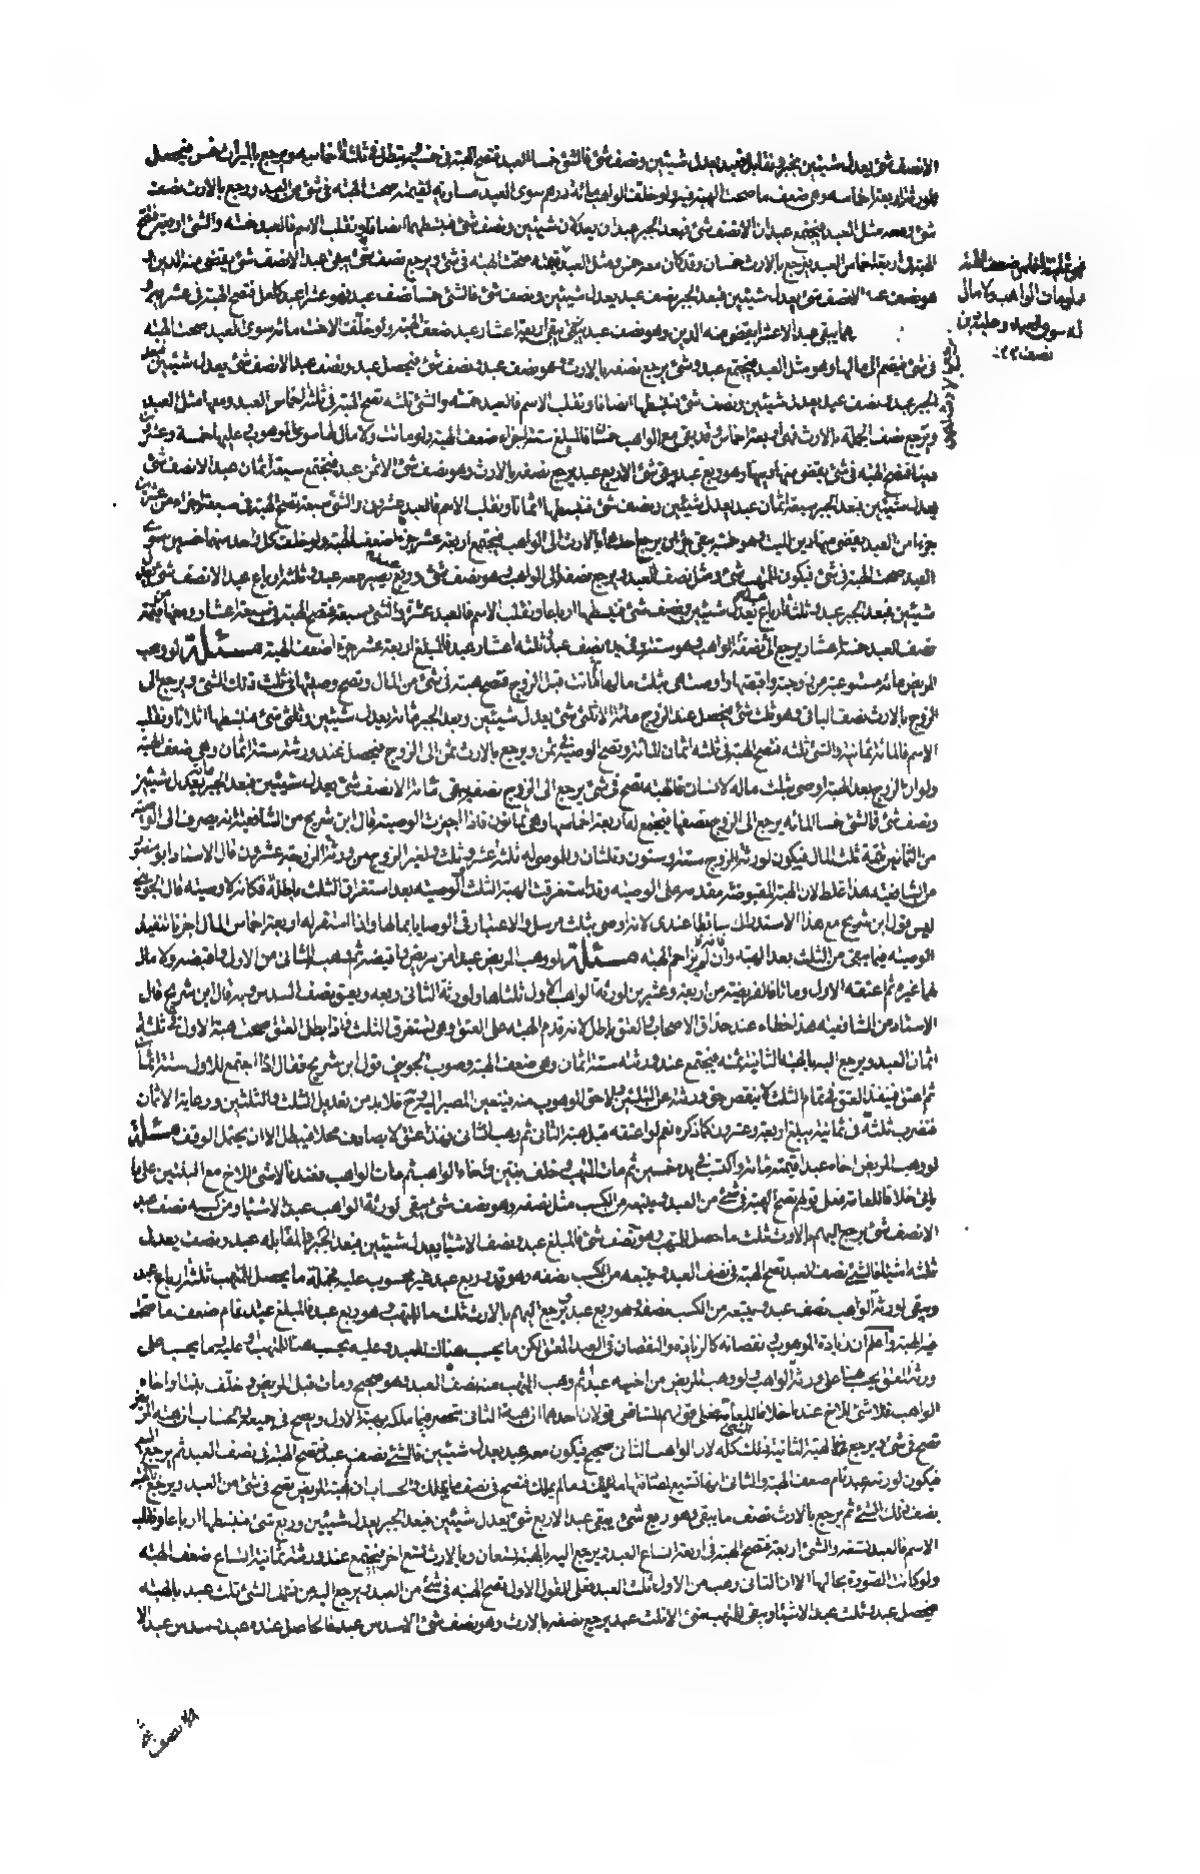 الا نصف شئ يعدل شيئين فيجبر ويقابل فعبد يعدل شيئين ونصف شئ فالشئ خمسا العبد فتصح الهبة في خمسيه ويبطل في ثلثة اخماسه ويرجع بالميراث خمس فيحصل
لورثته اربعة اخماسه وهي ضعف ما صحت الهبة فيه ولو خلف الواهب مائة درهم سوى العبد مساوية لقيمته صحت الهبة في شئ من العبد ورجع بالارث نصف
شئ ومعه مثل العبد فيجتمع عبدان الا نصف شئ فبعد الجبر عبدان يعدلان شيئين ونصف شئ فتبسطهما انصافا وتقلب الاسم فالعبد خمسة والشئ اربعة فتصح
الهبة في اربعة اخماس العبد يرجع بالارث خمسان وقد كان معه خمس ومثل العبد قيمته صحت الهبة في شئ ويرجع نصف شئ يبقى عبد الا نصف شئ يقضى منه الدين
وهو نصف عبد الا نصف شئ يعدل شيئين فبعد الجبر نصف عبد يعدل شيئين ونصف شئ فالشئ خمسا نصف عبد فهو عشرا عبد كامل فتصح الهبة في عشريه
مما يبقى عبد الا عشرا يقضى منه الدين وهو نصف عبد يبقى اربعة اعشار عبد ضعف الهبة ولو خلفت الاخت مائة سوى العبد صحت الهبة
في شئ فيضم الى مالها وهو مثل العبد فيجتمع عبد وشئ يرجع نصفه بالارث وهو نصف عبد ونصف شئ فيحصل عبد ونصف عبد الا نصف شئ يعدل شيئين فبعد
الجبر عبد ونصف عبد يعدل شيئين ونصف شئ فتبسطها انصافا وتقلب الاسم فالعبد خمسة والشئ ثلثة تصح الهبة في ثلثة اخماس العبد ومعها مثل العبد
ويرجع نصف الجملة بالارث فهي اربعة اخماس وقد بقي مع الواهب خمسان فالمبلغ ستة اجزاء ضعف الهبة ولو ماتت ولا مال لها سوى الموهوب وعليها خمسة وعشرون
دينا فتصح الهبة في شئ يقضى منها دينها وهو ربع عبد يبقى شئ الا ربع عبد يرجع نصفه بالارث وهو نصف شئ الا ثمن عبد فيجتمع سبعة اثمان عبد الا نصف شئ
يعدل شيئين فبعد الجبر سبعة اثمان عبد يعدل شيئين ونصف شئ فتبسطها اثمانا وتقلب الاسم فالعبد عشرون والشئ سبعة تصح الهبة في سبعة اجزاء من عشرين
جزءا من العبد يقضى منها دين الميت وهو خمسة يبقى جزءان يرجع احدهما بالارث الى الواهب فيجتمع اربعة عشر جزءا ضعف الهبة ولو خلف كل واحد منهما خمسين سوى
العبد صحت الهبة في شئ فيكون للمتهب شئ ومثل نصف العبد ويرجع نصفه الى الواهب وهو نصف شئ وربع عبد يصير معه عبد وثلثة ارباع عبد الا نصف شئ يعدل
شيئين فبعد الجبر عبد وثلثة ارباع عبد يعدل شيئين ونصف شئ فتبسطها ارباعا وتقلب الاسم فالعبد عشرة والشئ سبعة فتصح الهبة في سبعة اعشاره ومعها قيمة
نصف العبد خمسة اعشار يرجع الى الواهب نصفه وهو ستة وفي يده نصف عبد وثلثة اعشار عبد فالمبلغ اربعة عشر جزءا ضعف الهبة مسئلة لو وهب
المريض مائة مستوعبة من زوجته واقبضها واوصت هي بثلث مالها ثم ماتت قبل الزوج فتصح هبته في شئ من المال وتصح وصيتها في ثلث ذلك الشئ ويرجع الى
الزوج بالارث نصف الباقي وهو ثلث شئ فيحصل عند الزوج مائة الا ثلثي شئ يعدل شيئين وبعد الجبر مائة يعدل شيئين وثلثي شئ فتبسطها اثلاثا وتقلب
الاسم فالمائة ثمانية والشئ ثلثة فتصح الهبة في ثلثة اثمان المائة وتصح الوصية في ثمن ويرجع بالارث ثمن الى الزوج فيحصل عند ورثته ستة اثمان وهي ضعف الهبة
ولو ان الزوج بعد الهبة اوصى بثلث ماله لانسان فالهبة تصح في شئ يرجع الى الزوج نصفه يبقى مائة الا نصف شئ يعدل شيئين فبعد الجبر مائة يعدل شيئين
ونصف شئ فالشئ خمسا المائة يرجع الى الزوج نصفها فيجتمع له اربعة اخماسها وهي ثمانون فاذا اجيزت الوصية قال ابن شريح من الشافعية انه يصرف الى الوصية
من الثمانين تتمة ثلث المال فيكون لورثة الزوج ستة وستون وثلثان وللموصى له ثلثة عشر وثلث ولغير الزوج من ورثة الزوجة عشرون قال الاستاد ابو منصور
من الشافعية هذا غلط لان الهبة المقبوضة مقدمة على الوصية وقد استغرقت الهبة الثلث والوصية بعد استغراق الثلث باطلة فكانه لا وصية قال الجويني
ليس قول ابن شريح مع هذا الاستدراك ساقطا عندي لانه اوصى بثلث مرسل والاعتبار في الوصايا بمالها واذا استقر له اربعة اخماس المال اجزنا تنفيذ
الوصية فيما يبقى من الثلث بعد الهبة وان لم يزاحم الهبة مسئلة لو وهب المريض عبدا من مريض واقبضه ثم وهب الثاني من الاول واقبضه ولا مال
لهما غيره ثم اعتقه الاول وماتا فالفريضة من اربعة وعشرين لورثة الواهب الاول ثلثاها ولورثة الثاني ربعه ويعتق نصف السدس وبه قال ابن شريح قال
الاستاد من الشافعية هذا خطاء عند حذاق الاصحاب والعتق باطل لانه قدم الهبة على العتق وهي تستغرق الثلث فاذا بطل العتق صحت هبة الاول في ثلثة
اثمان العبد ويرجع اليه بالهبة الثانية ثمنه فيجتمع عند ورثته ستة اثمان وهي ضعف الهبة وصوب الجويني قول ابن شريح فقال اذا اجتمع للاول ستة اثمان
ثم اعتق فينفذ العتق في تمام الثلث كيلا ينقص حق ورثته عن الثلثين ولا حق الموهوب منه فيتعين المصير اليه وح فلا بد من تعديل الثلث والثلثين ورعاية الاثمان
فتضرب ثلثة في ثمانية يبلغ اربعة وعشرون كما ذكره نعم لو اعتقه قبل هبة الثاني ثم وهب الثاني فهذا عتق لا يصادف محلا فيبطل الا ان يحتمل الوقف مسئلة
لو وهب المريض اخاه عبدا قيمته مائة واكتسب في يده خمسين ثم مات المتهب وخلف بنتين واخاه الواهب ثم مات الواهب فعندنا لا شئ للاخ مع البنتين على ما
ياتي خلافا للعامة فعلى قولهم تصح الهبة في شئ من العبد ويتبعه من الكسب مثل نصفه وهو نصف شئ يبقى لورثة الواهب عبد الا شيئا ومن كسبه نصف عبد
الا نصف شئ يرجع اليهم بالارث ثلث ما حصل للمتهب وهو نصف شئ فالمبلغ عبد ونصف الا شيئا يعدل شيئين فبعد الجبر والمقابلة عبد ونصف يعدل
ثلثة اشياء فالشئ نصف العبد تصح الهبة في نصف العبد ويتبعه من الكسب نصفه وهو ربع عبد غير محسوب عليه فجملة ما يحصل للمتهب ثلثة ارباع عبد
ويبقى لورثة الواهب نصف عبد ويتبعه من الكسب نصفه وهو ربع عبد ويرجع اليهم بالارث ثلث ما للمتهب وهو ربع عبد فالمبلغ عبد تام ضعف ما صحت
فيه الهبة واعلم ان زيادة الموهوب ونقصانه كالزيادة والنقصان في العبد المعتق لكن ما يحسب هناك للعبد وعليه يحسب هنا للمتهب او عليه وما يحسب على
ورثة المعتق يحسب هنا على ورثة الواهب ولو وهب المريض من اخيه عبدا ثم وهب المتهب منه نصف العبد وهو صحيح ومات قبل المريض وخلف بنتا واخاه
الواهب فلا شئ للاخ عندنا خلافا للعامة فعلى قولهم للشافعي قولان احدهما ان هبة الثاني تنحصر فيما ملكه بهبة الاول ويصح في جميعه والحساب ان هبة المريض
تصح في شئ ويرجع بالهبة الثانية ذلك الشئ كله لان الواهب الثاني صحيح فيكون معه عبد يعدل شيئين فالشئ نصف عبد فتصح الهبة في نصف العبد ثم يرجع اليه
فيكون لورثته عبد تام ضعف الهبة والثاني انها تشيع لمصادفتها ما يملك وما لم يملك فتصح في نصف ما يملك والحساب ان هبة المريض تصح في شئ من العبد ويرجع بالهبة
نصف ذلك الشئ ثم يرجع بالارث نصف ما يبقى وهو ربع شئ يبقى عبد الا ربع شئ يعدل شيئين فبعد الجبر يعدل شيئين وربع شئ فتبسطها ارباعا وتقلب
الاسم فالعبد تسعة والشئ اربعة فتصح الهبة في اربعة اتساع العبد ويرجع اليه بالهبة تسعان وبالارث تسع اخر فيجتمع عند ورثته ثمانية اتساع ضعف الهبة
ولو كانت الصورة بحالها الا ان الثاني وهب من الاول ثلث العبد فعلى القول الاول تصح الهبة في شئ من العبد ويرجع اليه من ذلك الشئ ثلث عبد بالهبة
فيحصل عبد وثلث عبد الا شيئا ويبقى للمتهب شئ الا ثلث عبد يرجع نصفه بالارث وهو نصف شئ الا سدس عبد فالحاصل عنده عبد وسدس عبد الا
نصف شئ